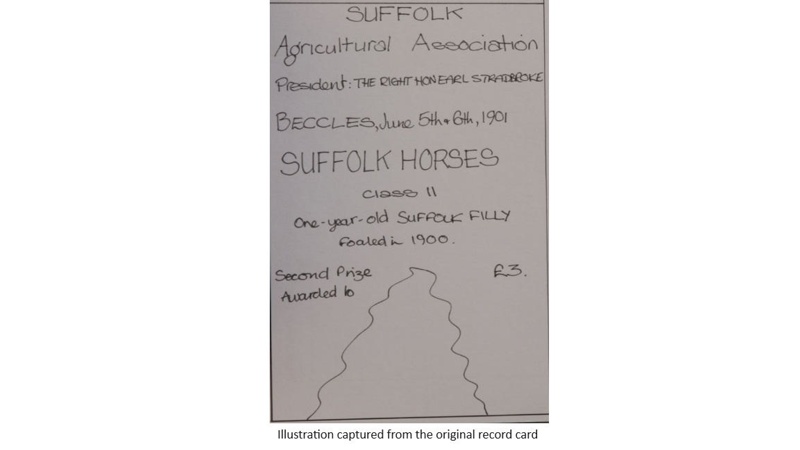 SUFFOLK
Agricultural Association
President: THE RIGHT HON EARL STRADBROKE
BECCLES, June 5th & 6th, 1901
SUFFOLK HORSES
Class II
One-year-old SUFFOLK FILLY
foaled in 1900.
Second Prize £3.
Awarded to
Illustration captured from the original record card